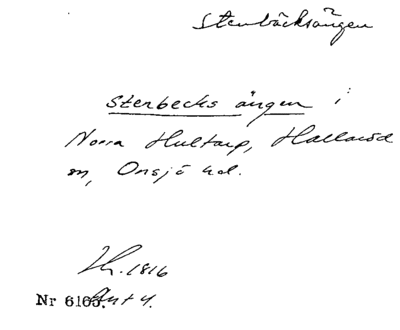 Stenbäcksängen
Stenbecks ängen i
Norra Hultarp, Hallaröd
sn, Onsjö hd.
Lh. 1816
Nr 6165. Akt 4.